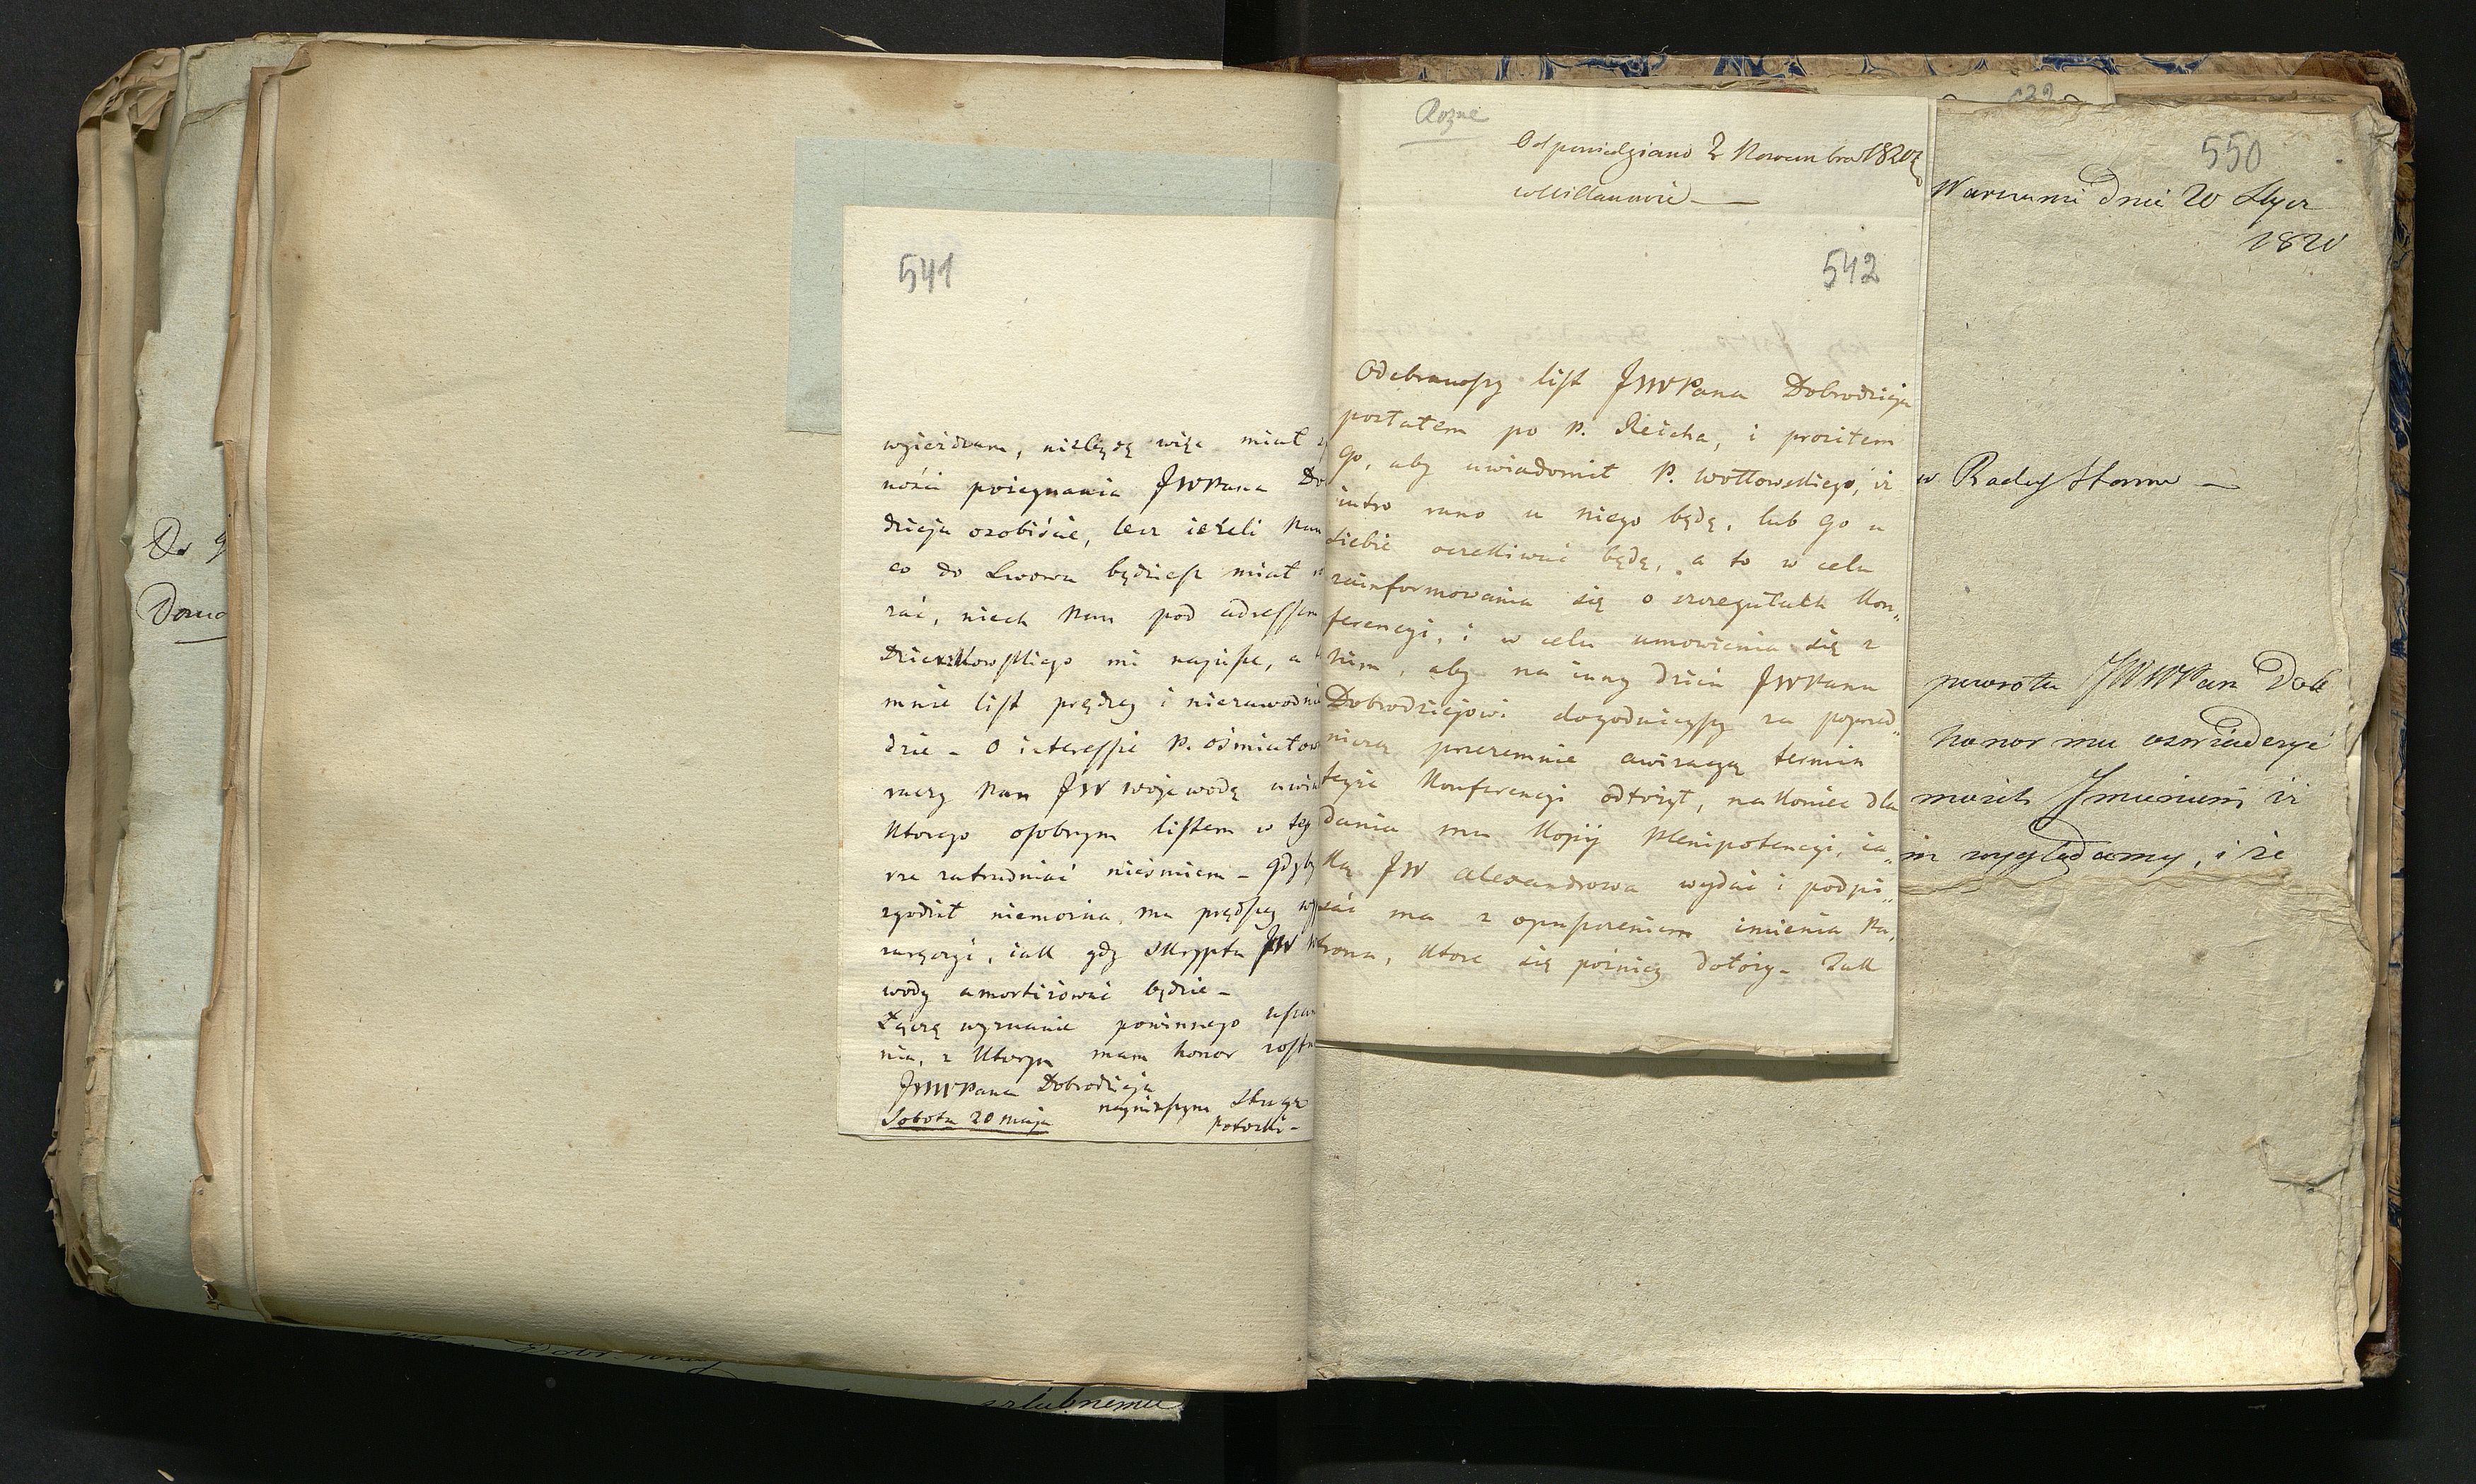 541
wyieżdżam, niebędę więc miał
ności pożegnania JWPana Do
dzieja osobiście, lecz ieżeli Pan
co do Lwowa będziesz miał
rać, niech Pan pod adressem
mi napisze, a
mnie list prędzey i niezawodnie
dzie – O interessie P.
raczy Pan JW Wojewodę uwia
Ktorego osobnym listem w tey
rze zatrudniać nieśmiem – gdyby
zgodzić niemożna, ma prędszey
iak gdy Skrypta JW Wo
wody amortizować będzie –
Łączę wyznanie powinnego uszan
nia, z Ktorym mam honor zosta
JWWPana Dobrodzieja
nayniższym Sługą
Sobota 20 maja Potocki –
Rozne
Odpowiedziano 2 Novembra 1820
w Willanowie –
542
Odebrawszy list JWWPana Dobrodzieja
posłałem po P. Reicha, i prosiłem
go, aby uwiadomił P. Wołłowskiego, iż
iutro rano u niego będę, lub go u
siebie oczekiwać będę, a to w celu
zainformowania się o szczegułach Kon„
ferencyi, i w celu umowienia się z
nim, aby na inny dzień JWPanu
Dobrodziejowi dogodnieyszy za poprzed„
niczą przezemnie awizacyą termin
teyże Konferencyi odłożył, nakoniec dla
dania mu Kopij Plenipotencyi, ia„
ką JW Alexandrowa wydać i podpi„
sać ma z opuszczeniem imienia Pa„
trona, Ktore się poźniey dołoży – Tak
550
dnia 20
1820
w Rady Stanu –
powrotu JWWPan Dob
honor mu oswiadczyć
moich Imieniem iż
wyglądamy, i że
Do